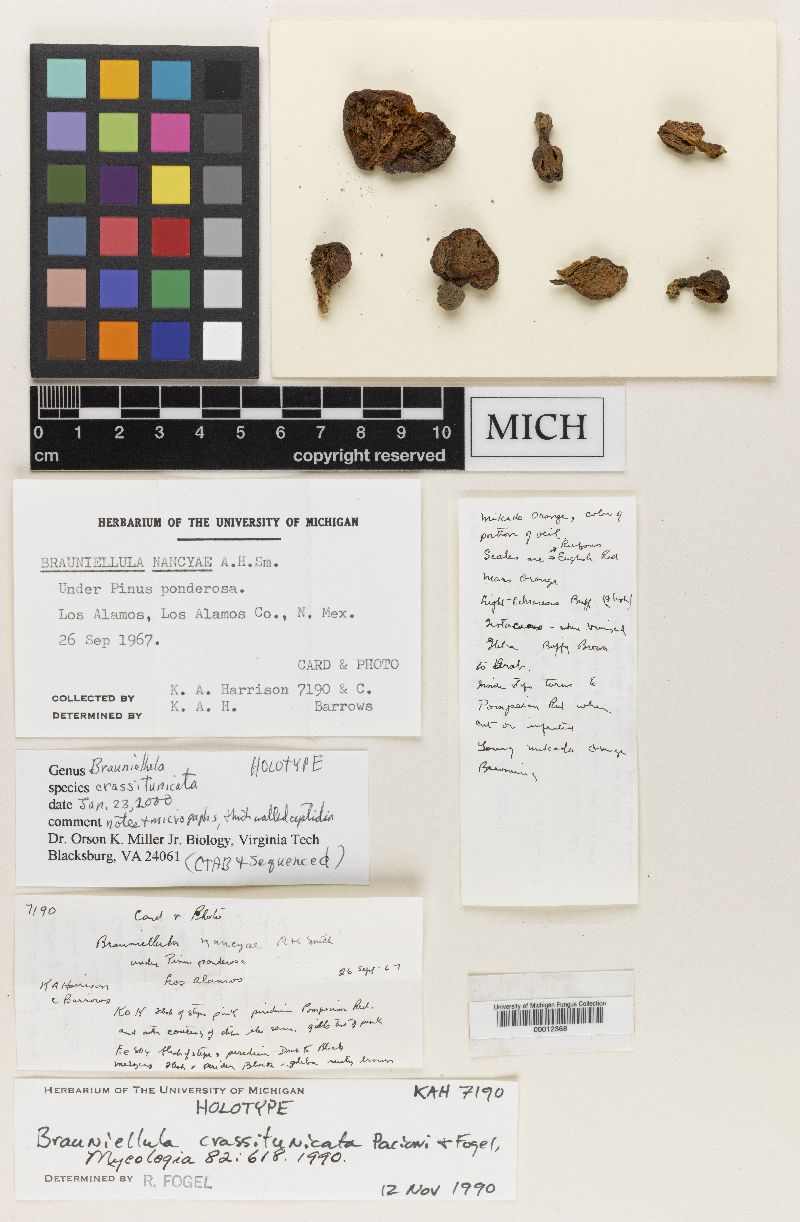 0 1 2 3 4 5 6 7 8 9 10
cm copyright reserved
MICH
HERBARIUM OF THE UNIVERSITY OF MICHIGAN
BRAUNIELLULA NANCYAE A.H.Sm.
Under Pinus ponderosa.
Los Alamos, Los Alamos Co., N. Mex.
26 Sep 1967.
CARD & PHOTO
COLLECTED BY K. A. Harrison 7190 & C.
DETERMINED BY K. A. H. Barrows
Mikado Orange, color of
portion of veil
Scales are Rufous
English Red
Mars Orange
Light-Ochraceous Buff
when bruised
Gleba Buffy Brown
to Drab.
Pompeian Red when
cut or injured
Young mikado orange
Browning
Genus Brauniellula HOLOTYPE
species crassitunicata
date Jan. 23, 2000
comment notes + micrographs, thick walled cystidia
Dr. Orson K. Miller Jr. Biology, Virginia Tech
Blacksburg, VA 24061 (CTAB & Sequenced)
7190 Card & Photo
Brauniellula nancyae AH Smith
under Pinus ponderosa
Los Alamos 26 Sept - 67
KA Harrison
C Barrows
KOH flesh of stipe pink peridium Pompeian Red.
and outer covering of stipe the same. gleba pink
FeSO4 flesh of stipe & peridium Dark to Black
flesh & peridium Black - gleba rusty brown
University of Michigan Fungus Collection
00012368
HERBARIUM OF THE UNIVERSITY OF MICHIGAN KAH 7190
HOLOTYPE
Brauniellula crassitunicata Pacioni & Fogel,
Mycologia 82:618. 1990.
DETERMINED BY R. FOGEL
12 NOV 1990